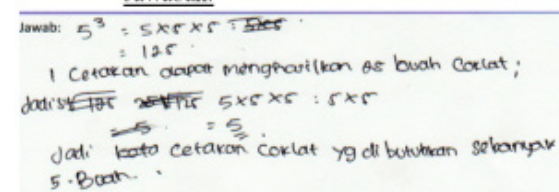 Jawab: 5³ = 5x5x5
= 125
1 Cetakan dapat menghasilkan buah Coklat;
Jadi 5x5x5 : 5x5
= 5
Jadi cetakan Coklat yg di butuhkan sebanyak
5 Buah.